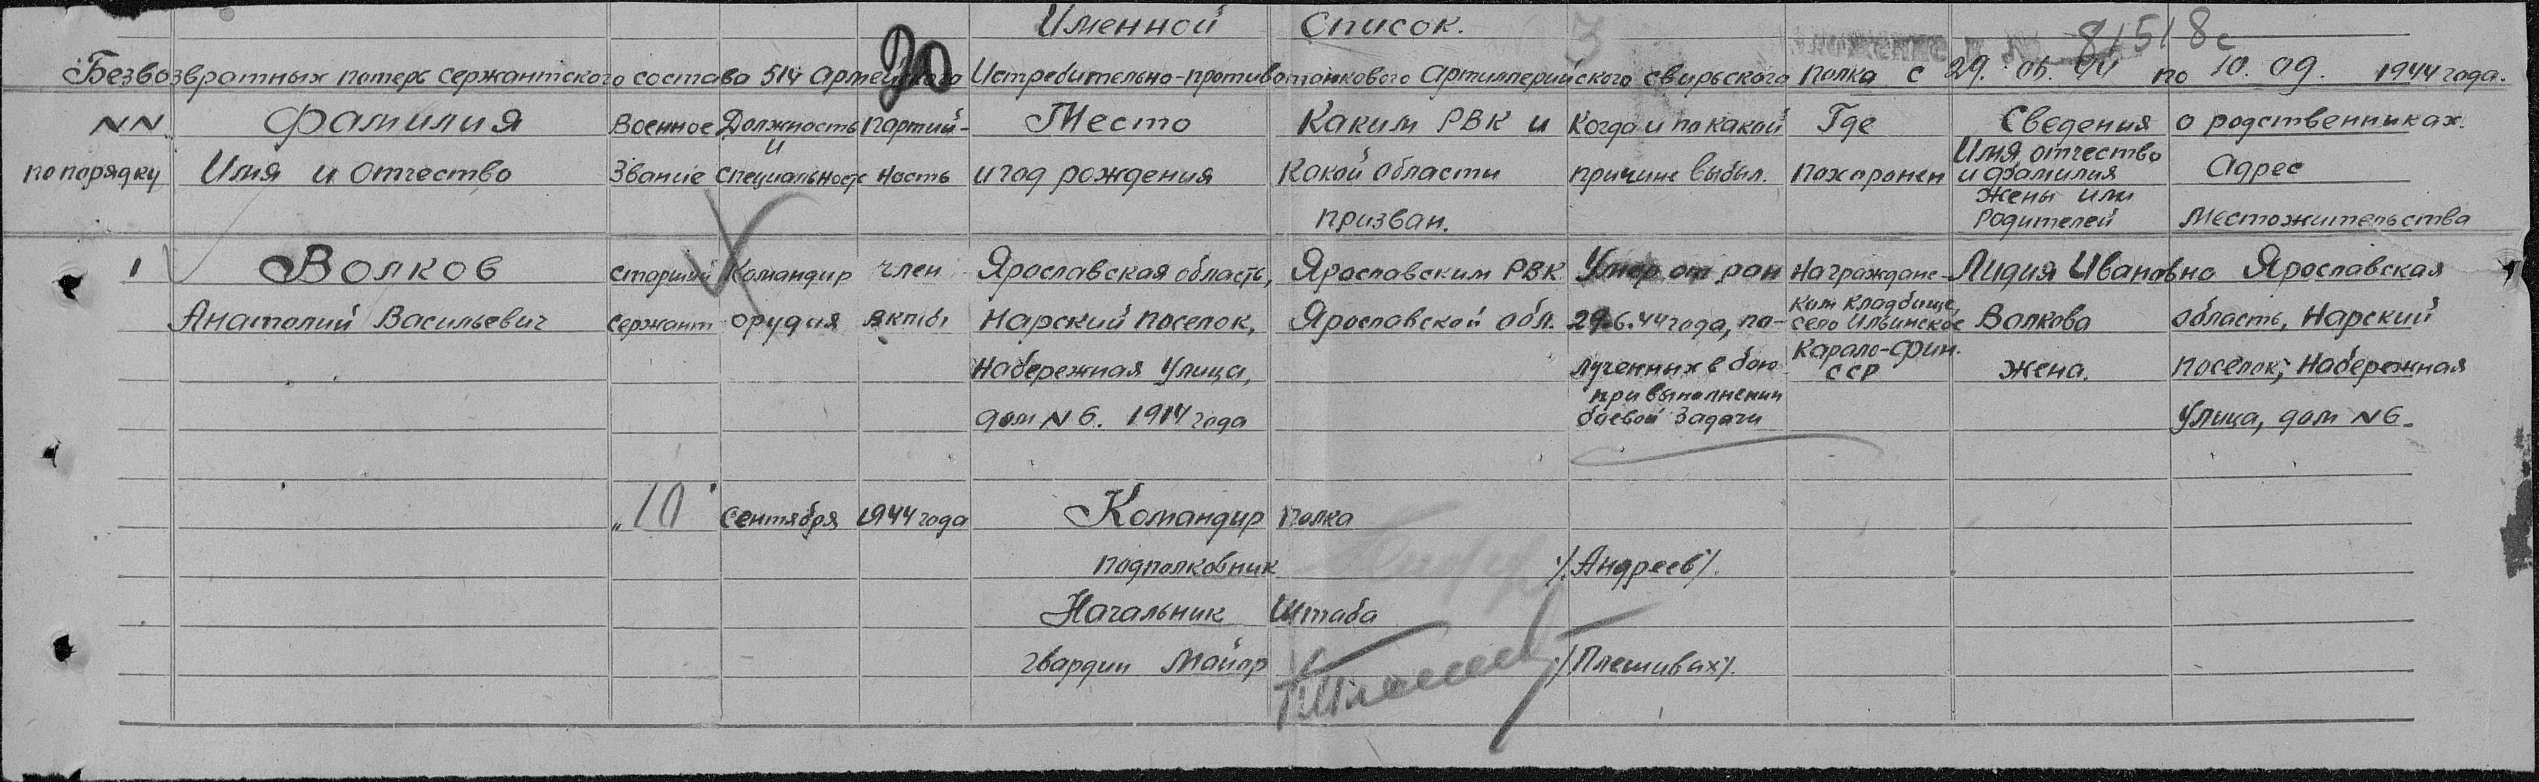 Именной список.
81518с
20
Безвозвратных потерь сержантского состава 514 Армейского Истребительно-противотанкового Артиллерийского Свирьского полка с 29. 06. 44 по 10. 09. 1944 года.
NN по порядку
Фамилия Имя и отчество
Военное Звание
Должность и специальность
Партийность
Место и год рождения
Каким РВК и какой области призван.
Когда и по какой причине выбыл.
Где похоронен
Сведения о родственниках.
Имя, отчество и фамилия жены или родителей
Адрес местожительства
1
Волков
Анатолий Васильевич
старший
сержант
Командир
орудия
член
ВКП(б)
Ярославская область,
Нарский поселок,
Набережная улица,
дом N 6. 1914 года
Ярославским РВК
Ярославской обл.
Умер от ран
29.6.44 года, по-
лученных в бою
при выполнении
боевой задачи
На гражданс-
ком кладбище,
село Ильинское
Карало-Фин.
ССР
Лидия Ивановна
Волкова
жена.
Ярославская
область, Нарский
поселок, Набережная
улица, дом N 6.
„10" Сентября 1944 года
Командир полка
подполковник /Андреев/.
Начальник Штаба
гвардии Майор /Плешивых/.